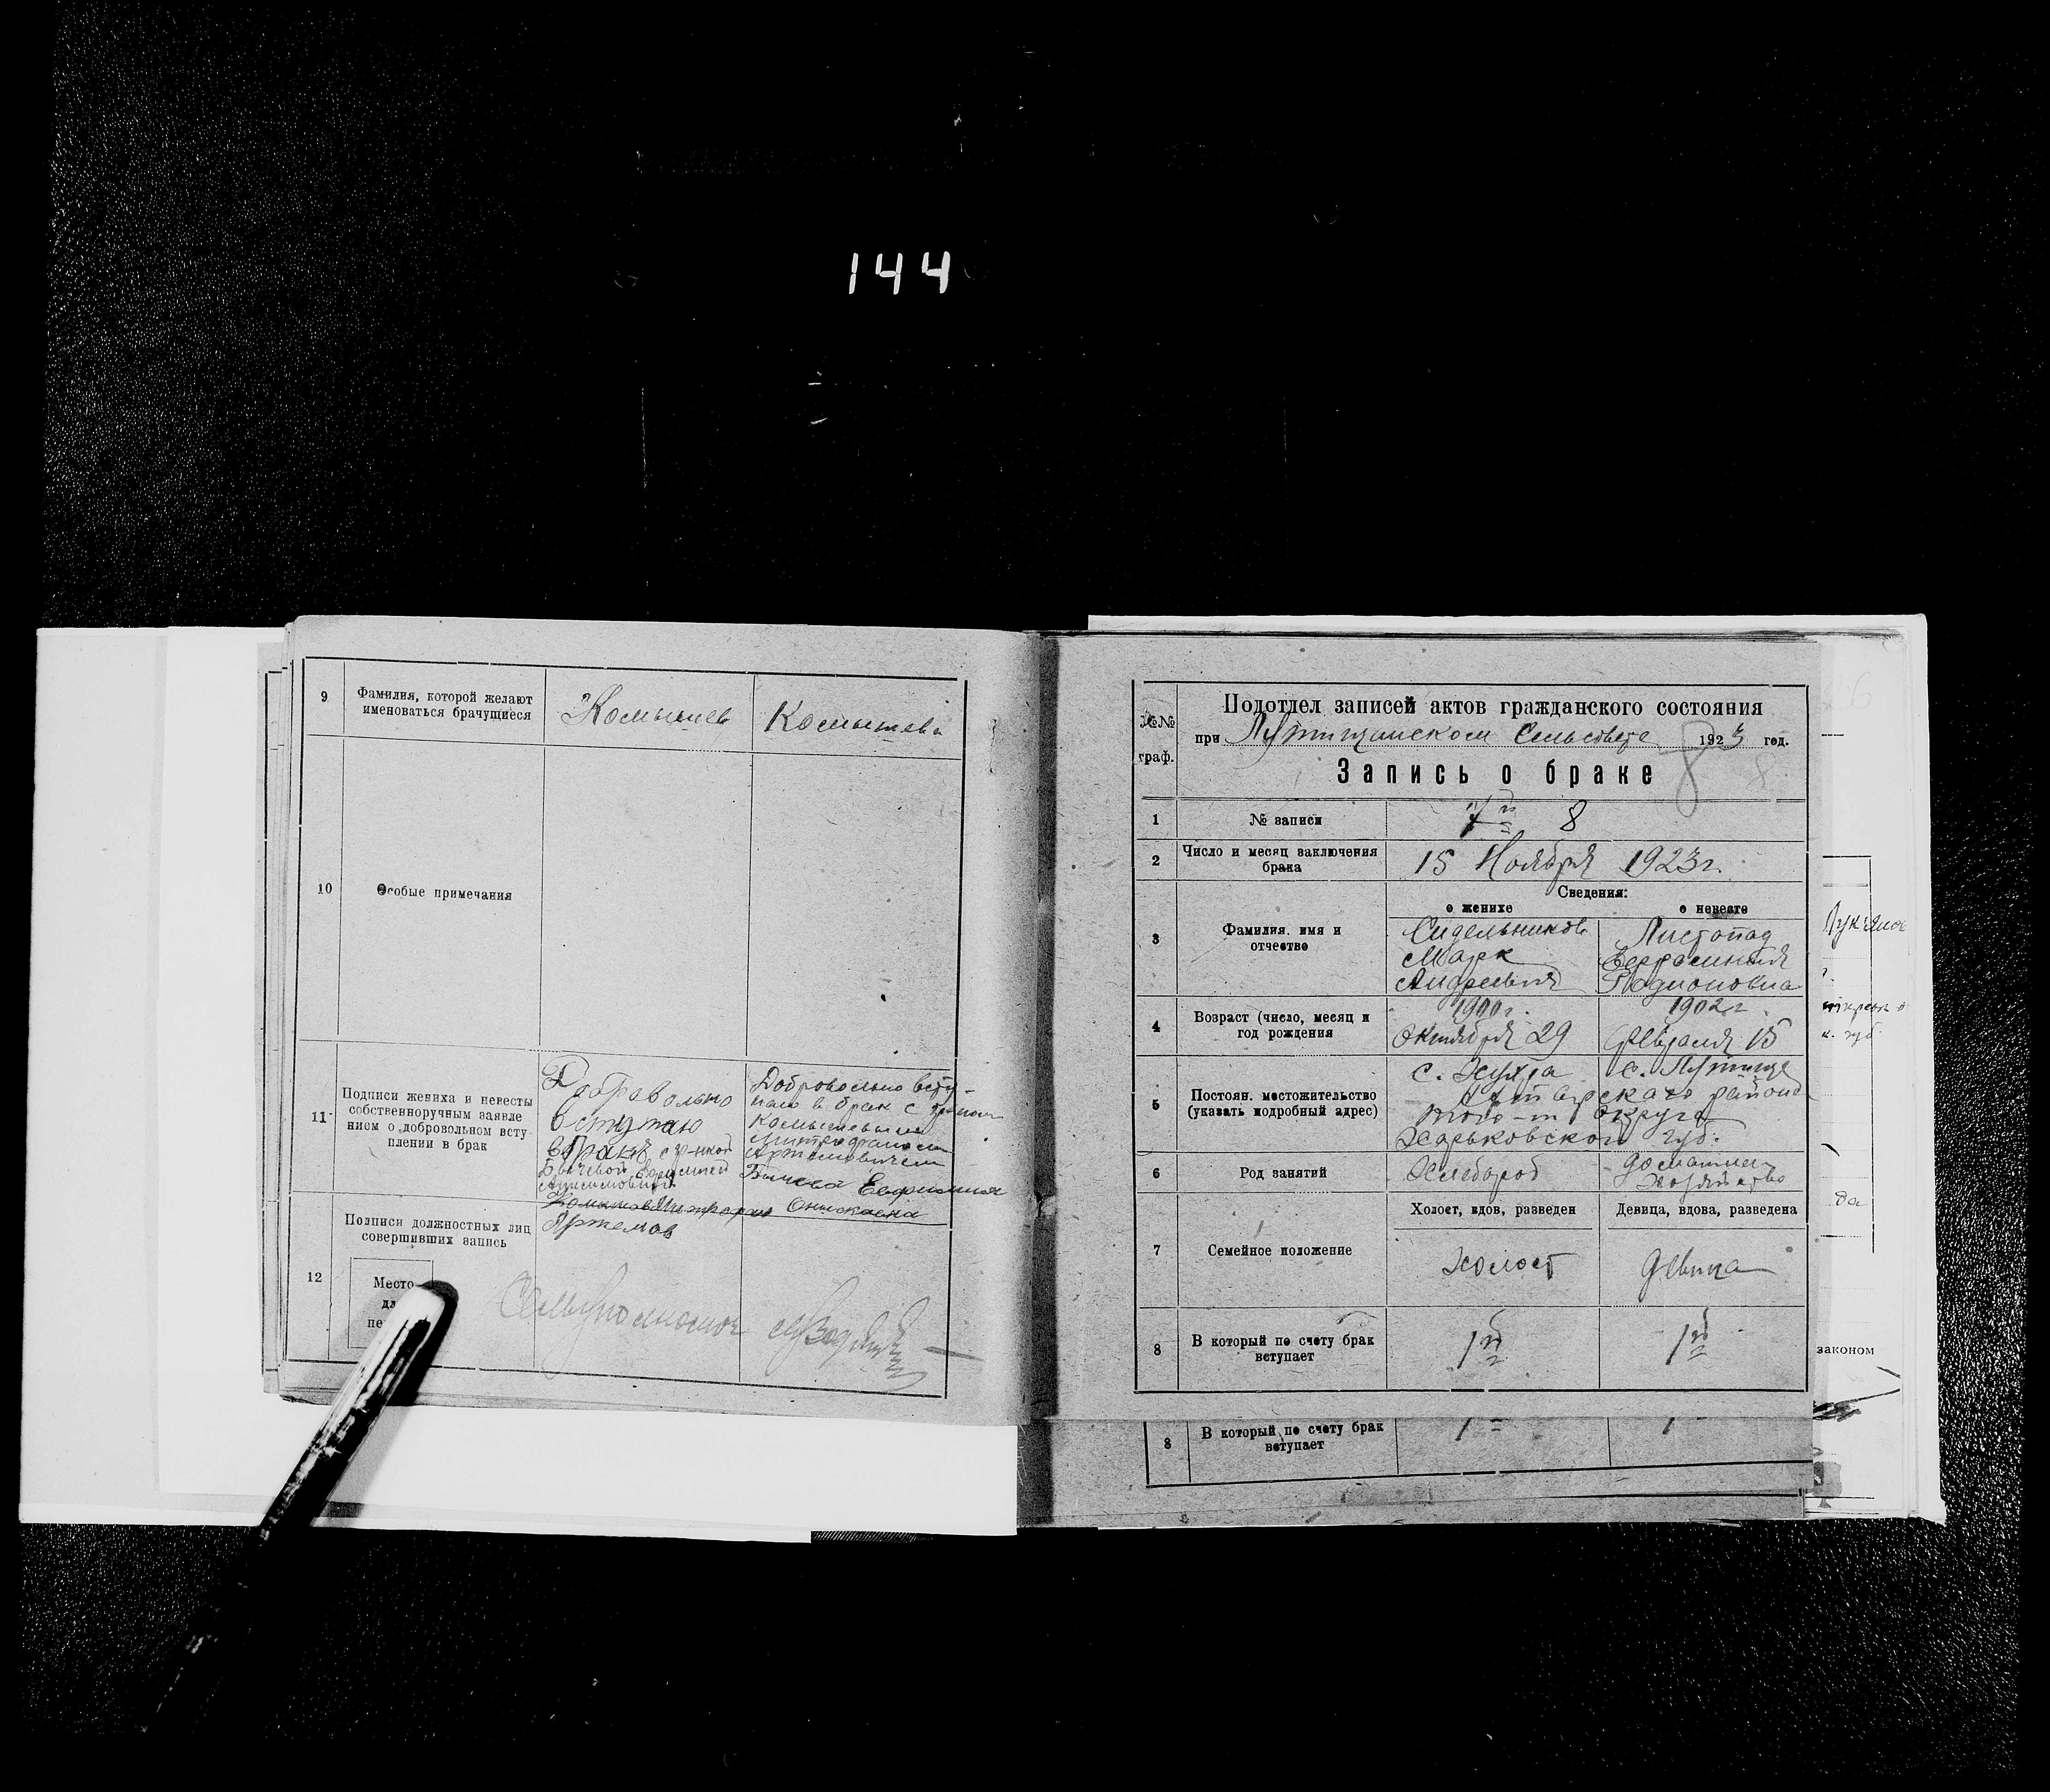 144
9
Фамилия, которой желают
именоваться брачущиеся
Комышев
Комышева
10
Особые примечания
11
Подписи жениха и невесты
собственноручным заявле
нием о добровольном всту-
плении в брак
Добровольно
вступаю
в брак с гр-нкой
Добровольно всту-
паю в брак с
Комышевым
Митрофаном
Артемовичем
Артемов
12
Подписи должностных лиц
совершивших запись
Место
дл
пе
№№
граф.
Подотдел записей актов гражданского состояния
при Сельсовете 1923 год.
Запись о браке
8
8
1
№ записи
8
2
Число и месяц заключения
брака
15 Ноября 1923 г.
Сведения:
о женихе
о невесте
3
Фамилия, имя и
отчество
Сидельников
Марк
Андреевич
Листопад
Родионовна
4
Возраст (число, месяц и
год рождения
1900 г.
Октября 29
1902 г.
Февраля 15
5
Постоян. местожительство
(указать подробный адрес)
с. Хухра
с.
района
того-ж округа
Харьковской губ.
6
Род занятий
Хлебороб
Домашнее
Хозяйство
7
Семейное положение
Холост, вдов, разведен
Девица, вдова, разведена
Холост
Девица
8
В который по счету брак
вступает
1й
1й
8
В который по счету брак
вступает
да
законом